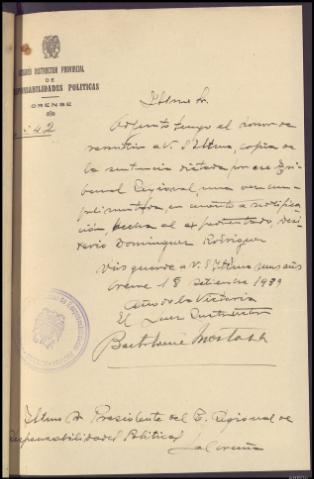 JUZGADO INSTRUCTOR PROVINCIAL
DE
RESPONSABILIDADES POLITICAS
ORENSE
42
Iltmo Sr.
Adjunto tengo el honor de
remitir a V. S. Iltma, copia de
la sentencia dictada por ese Tri-
bunal Regional, una vez cum-
plimentada, en cuanto a notifica-
ción, hecha al expedientado, Desi-
derio Dominguez Rodriguez
Dios guarde a V. S. Iltma muchos años
Orense 18 setiembre 1939
Año de la Victoria
El Juez Instructor
Bartolomé Mostaza
Iltmo Sr Presidente del T. Regional de
Responsabilidades Politicas
La Coruña